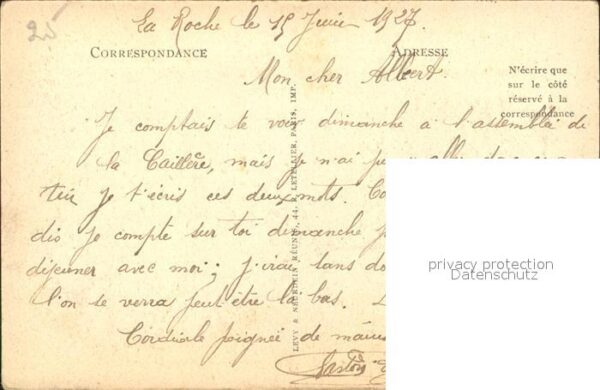 25
La Roche le 15 Juin 1927
CORRESPONDANCE
ADRESSE
Mon cher Albert.
N'écrire que
sur le côté
réservé à la
correspondance
Je comptais te voir dimanche a l'assemblée de
la Caillère, mais je n'ai
Je t'écris ces deux mots.
dis Je compte sur toi dimanche
déjeuner avec moi; J'irai sans
l'on se verra peut être là bas.
Cordiale poignée de mains
LEVY & NEURDEIN RÉUNIS, 44, R. LETELLIER, PARIS, IMP.
privacy protection
Datenschutz